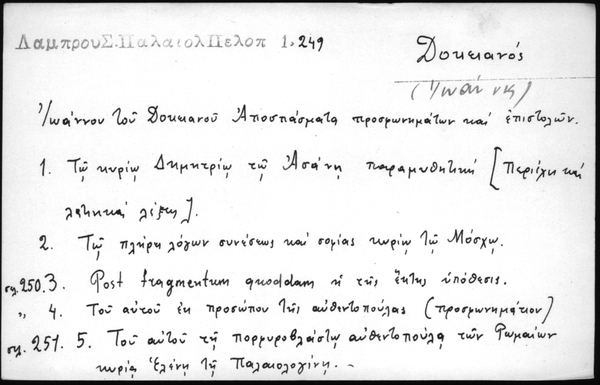 ΛαμπρουΣ.ΠαλαιολΠελοπ 1, 249
Δοκειανός
(Ἰωάννης)
Ἰωάννου τοῦ Δοκειανοῦ Ἀποσπάσματα προσφωνημάτων καί ἐπιστολῶν.
1. Τῷ κυρίῳ Δημητρίῳ τῷ Ἀσάνῃ παραμυθητική [Περιέχει καί
λατινικαί λέξεις].
2. Τῷ πλήρει λόγων συνέσεως καί σοφίας κυρίῳ τῷ Μόσχῳ.
σελ. 250. 3. Post fragmentum quoddam ἡ τῆς ἕκτης ὑπόθεσις.
" 4. Τοῦ αὐτοῦ ἐκ προσώπου τῆς αὐθεντοπούλας (προσφωνημάτιον)
σελ. 251. 5. Τοῦ αὐτοῦ τῇ πορφυροβλάστῳ αὐθεντοπούλᾳ τῶν Ῥωμαίων
κυρίᾳ Ἑλένῃ τῇ Παλαιολογίνῃ. -